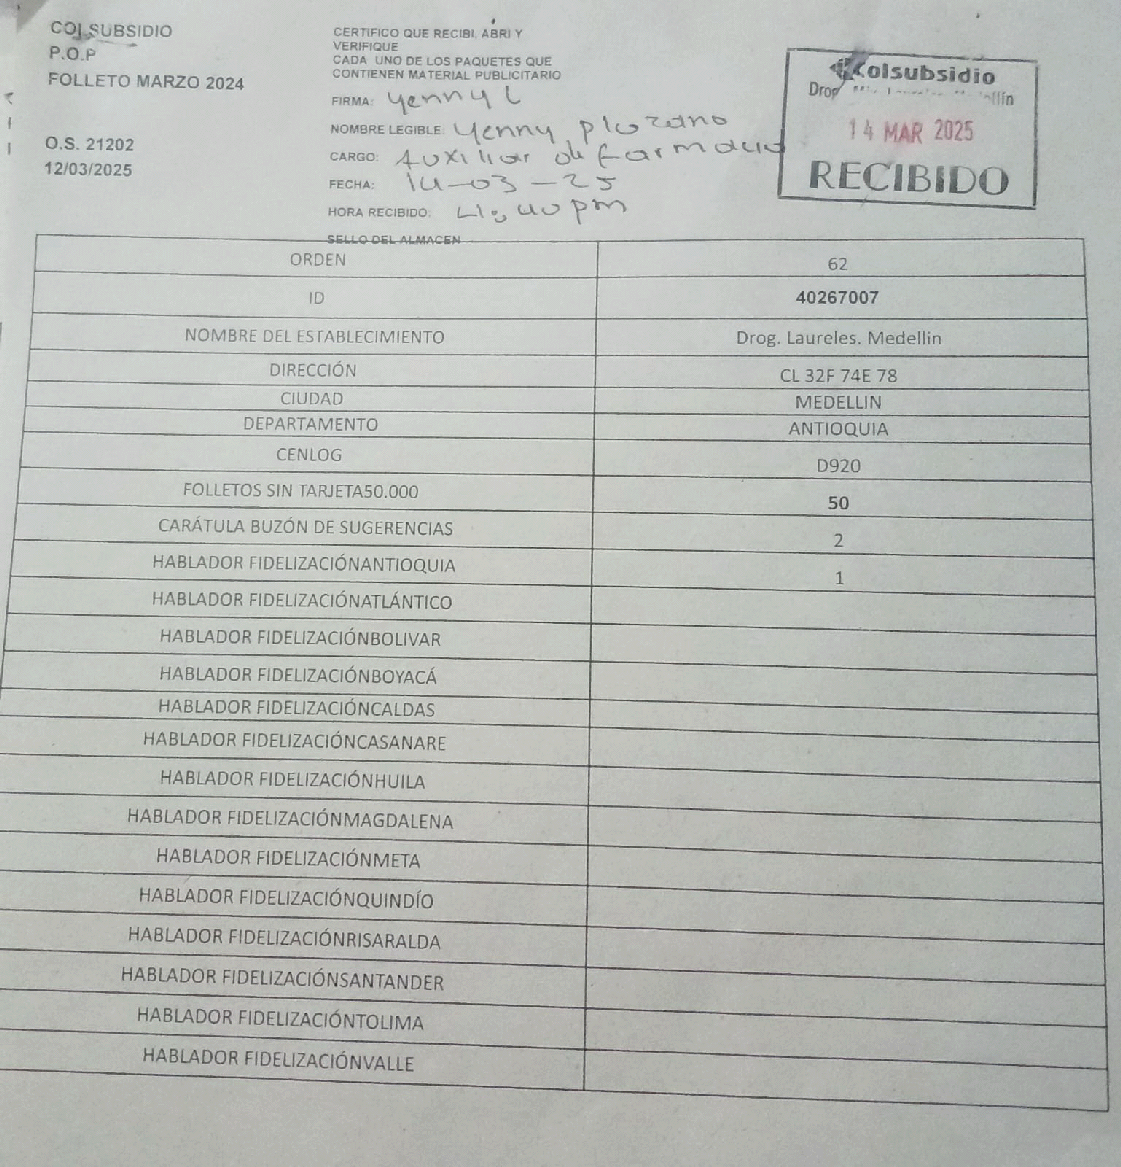 COLSUBSIDIO
P.O.P
FOLLETO MARZO 2024
O.S. 21202
12/03/2025
CERTIFICO QUE RECIBI, ABRI Y
VERIFIQUE
CADA UNO DE LOS PAQUETES QUE
CONTIENEN MATERIAL PUBLICITARIO
FIRMA: Yenny L
NOMBRE LEGIBLE: Yenny plozano
CARGO: Auxiliar de farmacia
FECHA: 14-03-25
HORA RECIBIDO: 4:40 pm
SELLO DEL ALMACEN
Colsubsidio
Drog
14 MAR 2025
RECIBIDO
ORDEN 62
ID 40267007
NOMBRE DEL ESTABLECIMIENTO Drog. Laureles. Medellin
DIRECCIÓN CL 32F 74E 78
CIUDAD MEDELLIN
DEPARTAMENTO ANTIOQUIA
CENLOG D920
FOLLETOS SIN TARJETA50.000 50
CARÁTULA BUZÓN DE SUGERENCIAS 2
HABLADOR FIDELIZACIÓNANTIOQUIA 1
HABLADOR FIDELIZACIÓNATLÁNTICO
HABLADOR FIDELIZACIÓNBOLIVAR
HABLADOR FIDELIZACIÓNBOYACÁ
HABLADOR FIDELIZACIÓNCALDAS
HABLADOR FIDELIZACIÓNCASANARE
HABLADOR FIDELIZACIÓNHUILA
HABLADOR FIDELIZACIÓNMAGDALENA
HABLADOR FIDELIZACIÓNMETA
HABLADOR FIDELIZACIÓNQUINDÍO
HABLADOR FIDELIZACIÓNRISARALDA
HABLADOR FIDELIZACIÓNSANTANDER
HABLADOR FIDELIZACIÓNTOLIMA
HABLADOR FIDELIZACIÓNVALLE